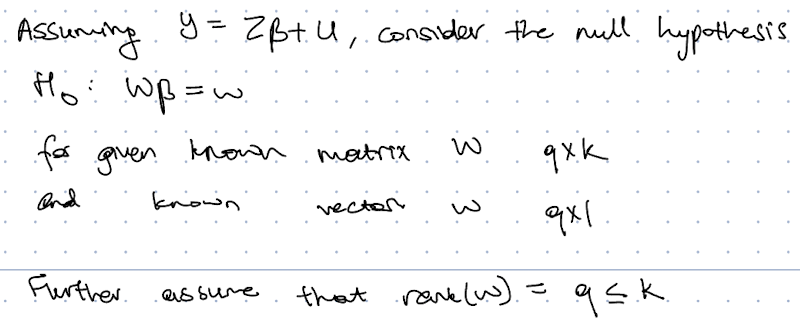 Assuming y = Zβ + u, consider the null hypothesis
H₀: Wβ = w
for given known matrix W q×k
and known vector w q×1
Further assume that rank(W) = q ≤ k